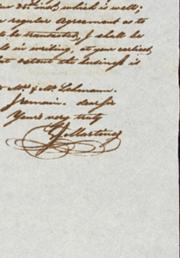 25th inst which is well;
regular Agreement as to
to be transacted, I shall be
in writing, at your earliest
extent the business is
Mrs & Mr Lehmann.
I remain. dear Sir
Yours very truly
Martinez